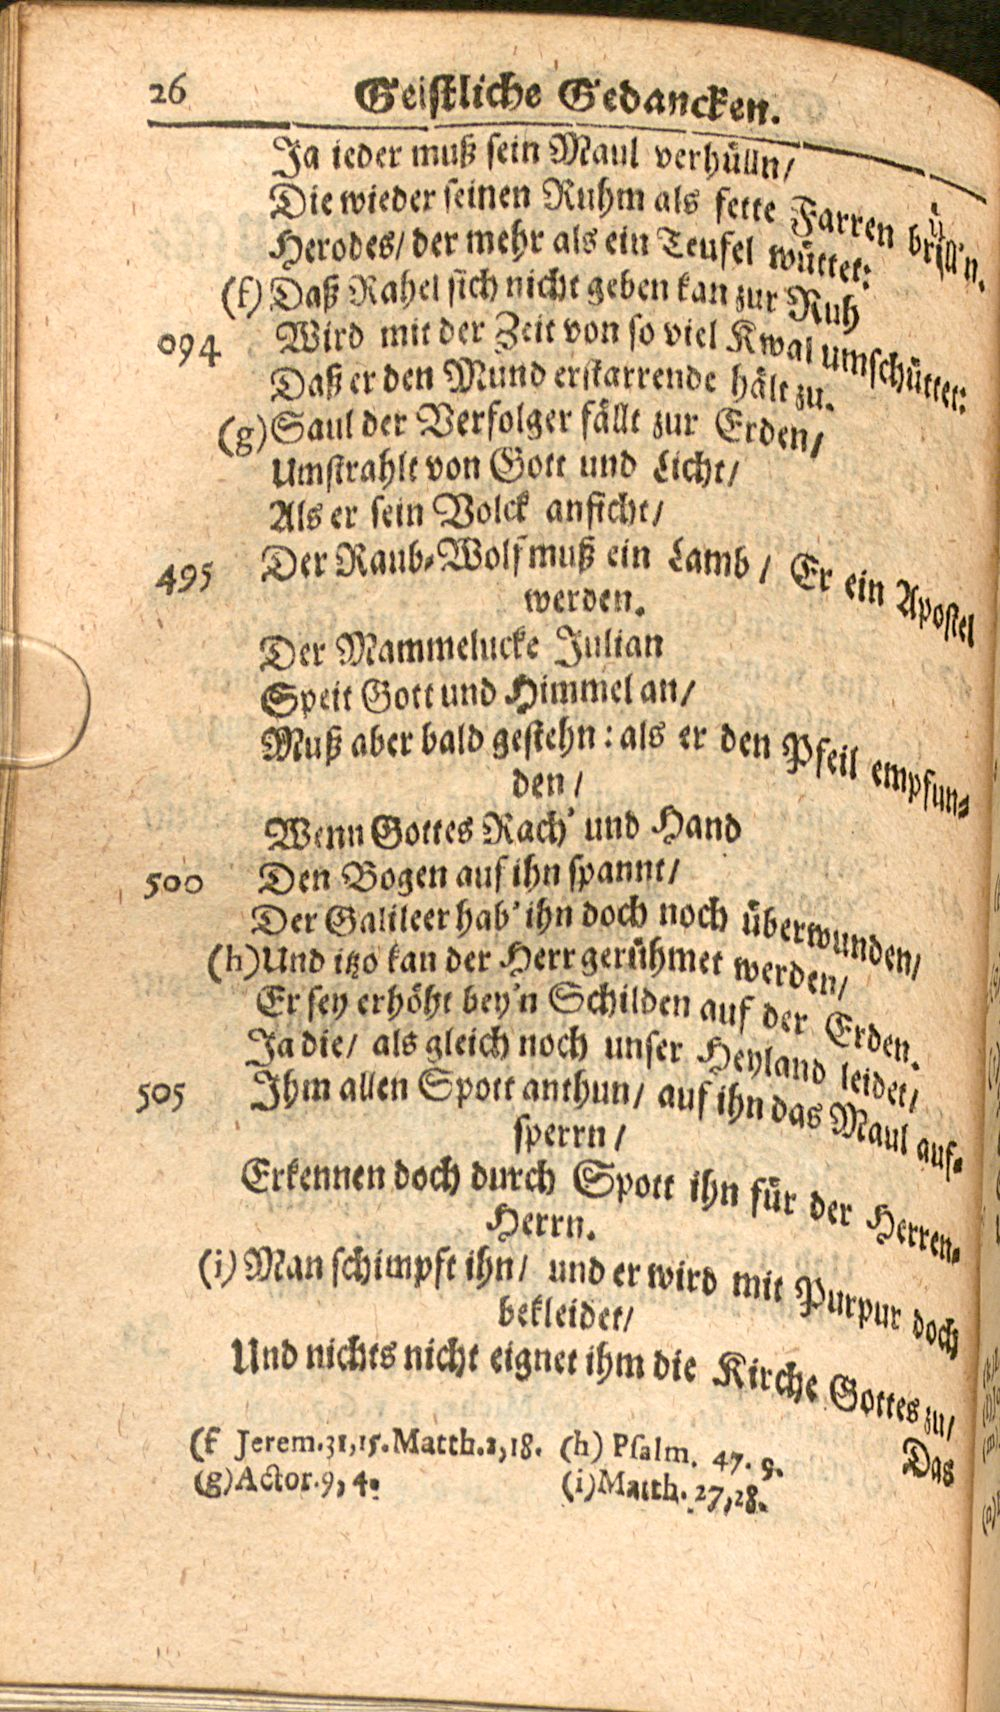 26 Geistliche Gedancken.
Ja ieder muß sein Maul verhülln/
Die wieder seinen Ruhm als fette Farren brüll'n.
Herodes/ der mehr als ein Teufel wüttet:
(f) Daß Rahel sich nicht geben kan zur Ruh
094 Wird mit der Zeit von so viel Kwal umschüttet:
Daß er den Mund erstarrende hält zu.
(g) Saul der Verfolger fällt zur Erden/
Umstrahlt von Gott und Licht/
Als er sein Volck anficht/
495 Der Raub-Wolf muß ein Lamb / Er ein Apostel
werden.
Der Mammelucke Julian
Speit Gott und Himmel an/
Muß aber bald gestehn: als er den Pfeil empfun-
den /
Wenn Gottes Rach' und Hand
500 Den Bogen auf ihn spannt/
Der Galileer hab' ihn doch noch überwunden/
(h) Und itzo kan der Herr gerühmet werden/
Er sey erhöht bey'n Schilden auf der Erden.
Ja die/ als gleich noch unser Heyland leidet/
505 Ihm allen Spott anthun/ auf ihn das Maul auf-
sperrn /
Erkennen doch durch Spott ihn für der Herren-
Herrn.
(i) Man schimpft ihn/ und er wird mit Purpur doch
bekleidet/
Und nichts nicht eignet ihm die Kirche Gottes zu/
Das
(f Jerem. 31, 15. Matth. 2, 18. (h) Psalm. 47. 9.
(g) Actor. 9, 4. (i) Matth. 27, 28.